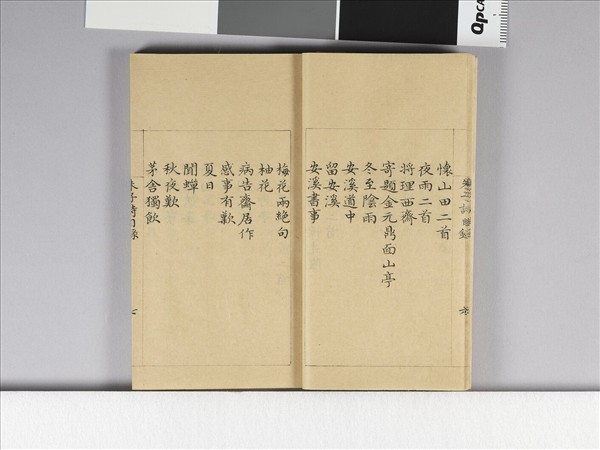 懷山田二首
夜雨二首
將理西齋
寄題金元鼎面山亭
冬至陰雨
安溪道中
留安溪
安溪書事
梅花兩絕句
柚花
病告齋居作
感事有歎
夏日
聞蟬
秋夜歎
茅舍獨飲
朱子詩目錄
QPCA